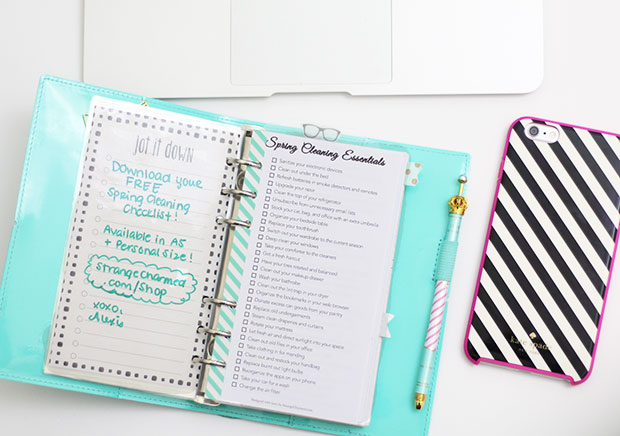 jot it down
Download your
FREE
Spring Cleaning
Checklist!
Available in A5
+ Personal Size!
StrangeCharmed
.com/Shop
xoxo,
Alexis
Spring Cleaning Essentials
Sanitize your electronic devices
Clean out under the bed
Refresh batteries in smoke detectors and remotes
Upgrade your razor
Clean the top of your refrigerator
Unsubscribe from unnecessary email lists
Stock your car, bag, and office with an extra umbrella
Organize your bedside table
Replace your toothbrush
Switch out your wardrobe to the current season
Deep clean your windows
Take your comforter to the cleaners
Get a fresh haircut
Have your tires rotated and balanced
Clean out your makeup drawer
Wash your bathrobe
Clean out the lint trap in your dryer
Organize the bookmarks in your web browser
Donate excess can goods from your pantry
Replace old undergarments
Steam clean mattresses and curtains
Rotate your mattress
Let fresh air and direct sunlight into your space
Clean out old files in your office
Take clothing in for mending
Clean out and restock your handbag
Replace burnt out light bulbs
Reorganize the apps on your phone
Take your car for a wash
Change the air filter
kate spade